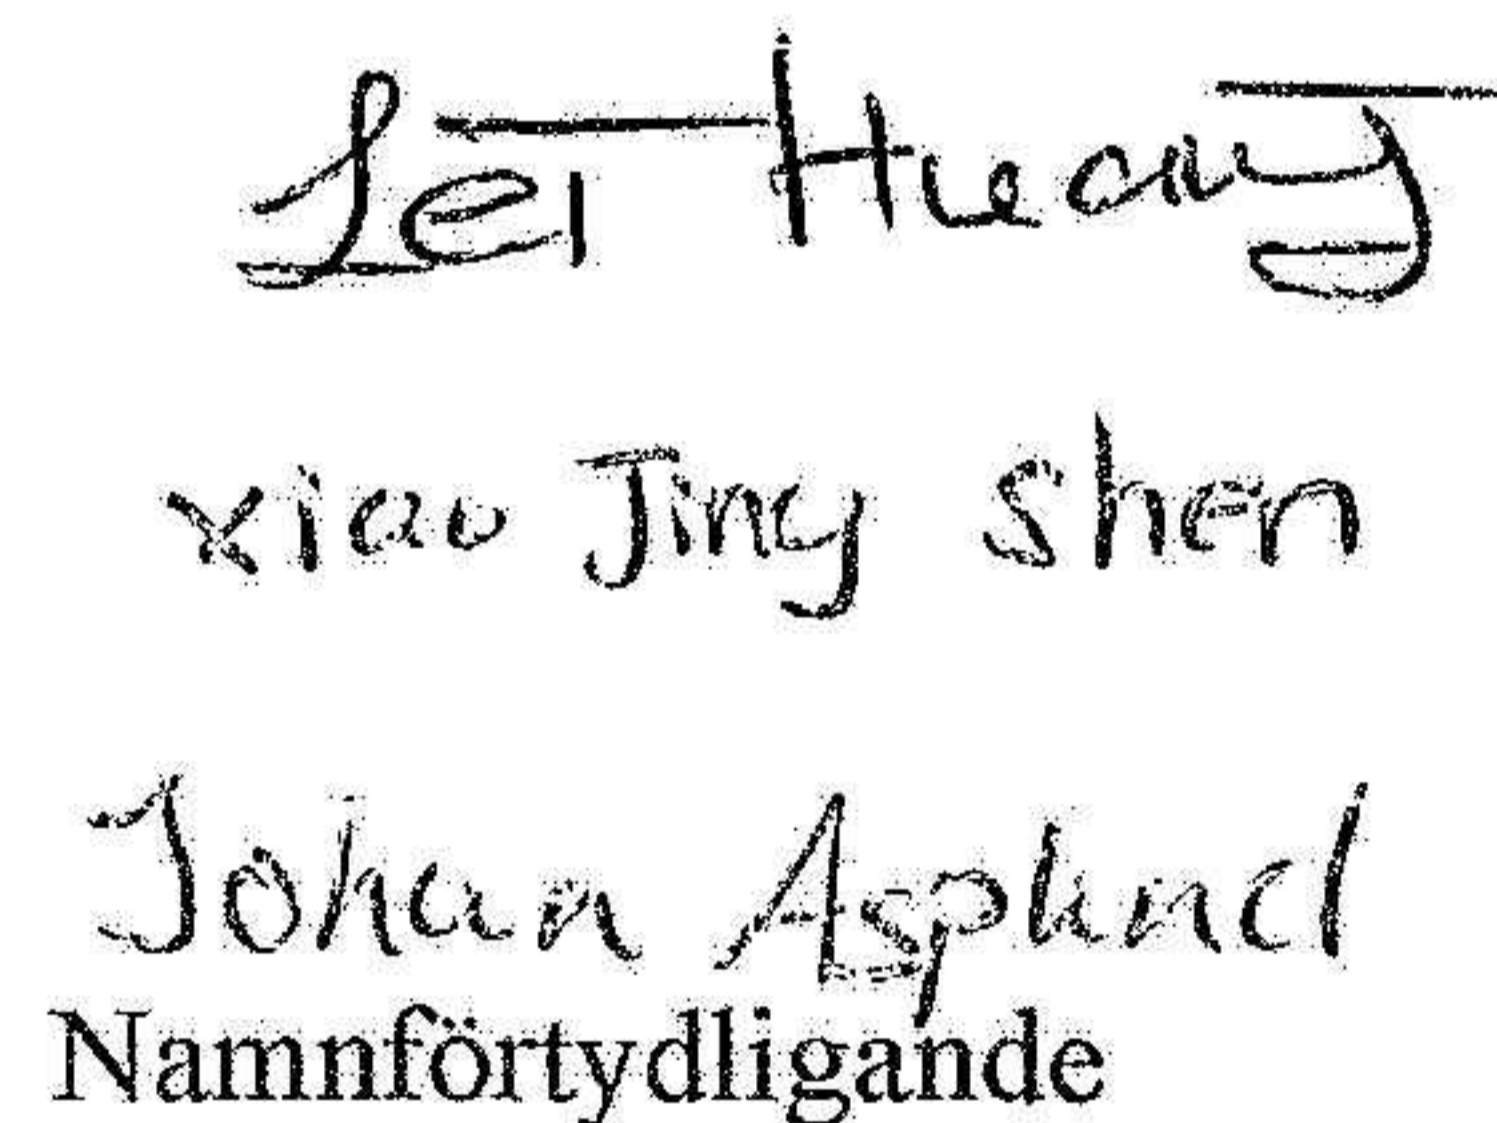 Lei Huang
xiao Jing Shen
Johan Asplund
Namnförtydligande